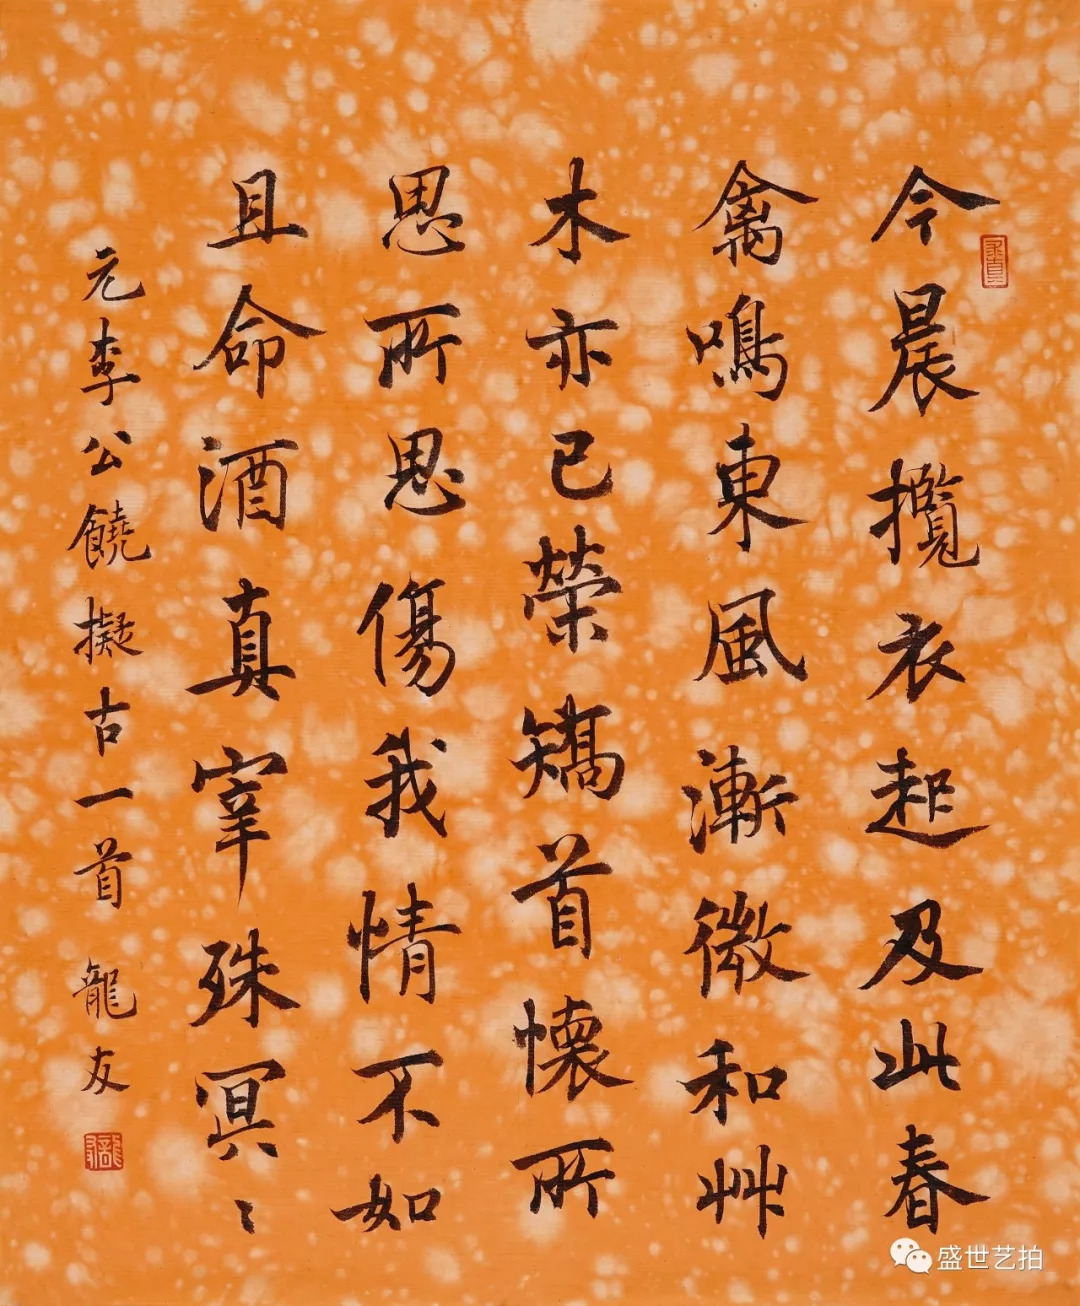 今晨攬衣起及此春
禽鳴東風漸微和艸
木亦已榮矯首懷所
思所思傷我情不如
且命酒真宰殊冥〻
元李公饒擬古一首 龍友
盛世艺拍